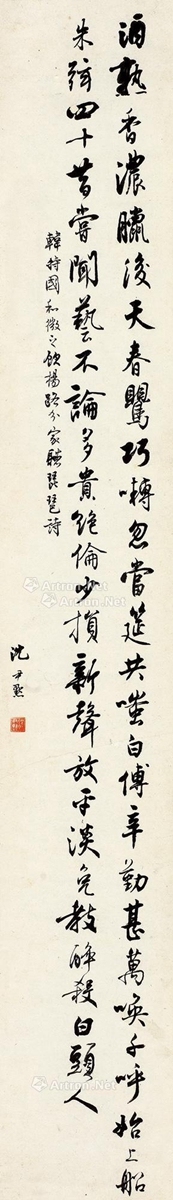 酒熟香浓臈後天春鶯巧囀忽當筵共嗤白傅辛勤甚萬喚千呼始上船
朱弦四十昔嘗聞藝不論多貴絶倫少損新聲放平淡免教醉殺白頭人
韓持國和微之飲楊路分家聽琵琶詩
沈尹默
Artron.Net
Artron.Net